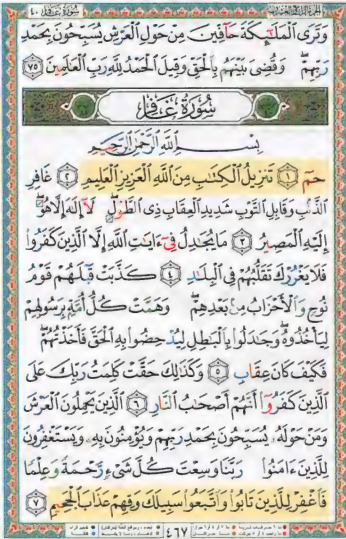 سُورَةُ غَافِرٍ ٤٠
وَتَرَى الْمَلَائِكَةَ حَافِّينَ مِنْ حَوْلِ الْعَرْشِ يُسَبِّحُونَ بِحَمْدِ
رَبِّهِمْ وَقُضِيَ بَيْنَهُم بِالْحَقِّ وَقِيلَ الْحَمْدُ لِلَّهِ رَبِّ الْعَالَمِينَ ٧٥
سُورَةُ غَافِرٍ
بِسْمِ اللَّهِ الرَّحْمَٰنِ الرَّحِيمِ
حمٓ ١ تَنزِيلُ الْكِتَٰبِ مِنَ اللَّهِ الْعَزِيزِ الْعَلِيمِ ٢ غَافِرِ
الذَّنۢبِ وَقَابِلِ التَّوْبِ شَدِيدِ الْعِقَابِ ذِى الطَّوْلِ لَآ إِلَٰهَ إِلَّا هُوَ
إِلَيْهِ الْمَصِيرُ ٣ مَا يُجَٰدِلُ فِىٓ ءَايَٰتِ اللَّهِ إِلَّا الَّذِينَ كَفَرُوا
فَلَا يَغْرُرْكَ تَقَلُّبُهُمْ فِى الْبِلَٰدِ ٤ كَذَّبَتْ قَبْلَهُمْ قَوْمُ
نُوحٍ وَالْأَحْزَابُ مِنۢ بَعْدِهِمْ وَهَمَّتْ كُلُّ أُمَّةٍۭ بِرَسُولِهِمْ
لِيَأْخُذُوهُ وَجَٰدَلُوا بِالْبَٰطِلِ لِيُدْحِضُوا بِهِ الْحَقَّ فَأَخَذْتُهُمْ
فَكَيْفَ كَانَ عِقَابِ ٥ وَكَذَٰلِكَ حَقَّتْ كَلِمَتُ رَبِّكَ عَلَى
الَّذِينَ كَفَرُوٓا أَنَّهُمْ أَصْحَٰبُ النَّارِ ٦ الَّذِينَ يَحْمِلُونَ الْعَرْشَ
وَمَنْ حَوْلَهُۥ يُسَبِّحُونَ بِحَمْدِ رَبِّهِمْ وَيُؤْمِنُونَ بِهِۦ وَيَسْتَغْفِرُونَ
لِلَّذِينَ ءَامَنُوا رَبَّنَا وَسِعْتَ كُلَّ شَىْءٍ رَّحْمَةً وَعِلْمًا
فَاغْفِرْ لِلَّذِينَ تَابُوا وَاتَّبَعُوا سَبِيلَكَ وَقِهِمْ عَذَابَ الْجَحِيمِ ٧
٤٦٧